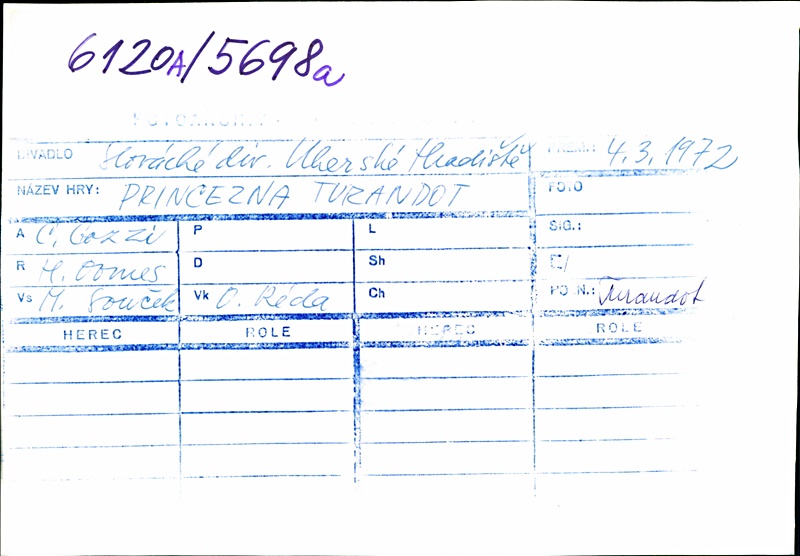 6120A/5698a
DIVADLO Slovácké div. Uherské Hradiště PREM.: 4.3.1972
NÁZEV HRY: PRINCEZNA TURANDOT FOTO
A C. Gozzi P L SIG.:
R H. Domes D Sh Č/
Vs M. Souček Vk O. Réda Ch PO N.: Turandot
HEREC ROLE HEREC ROLE